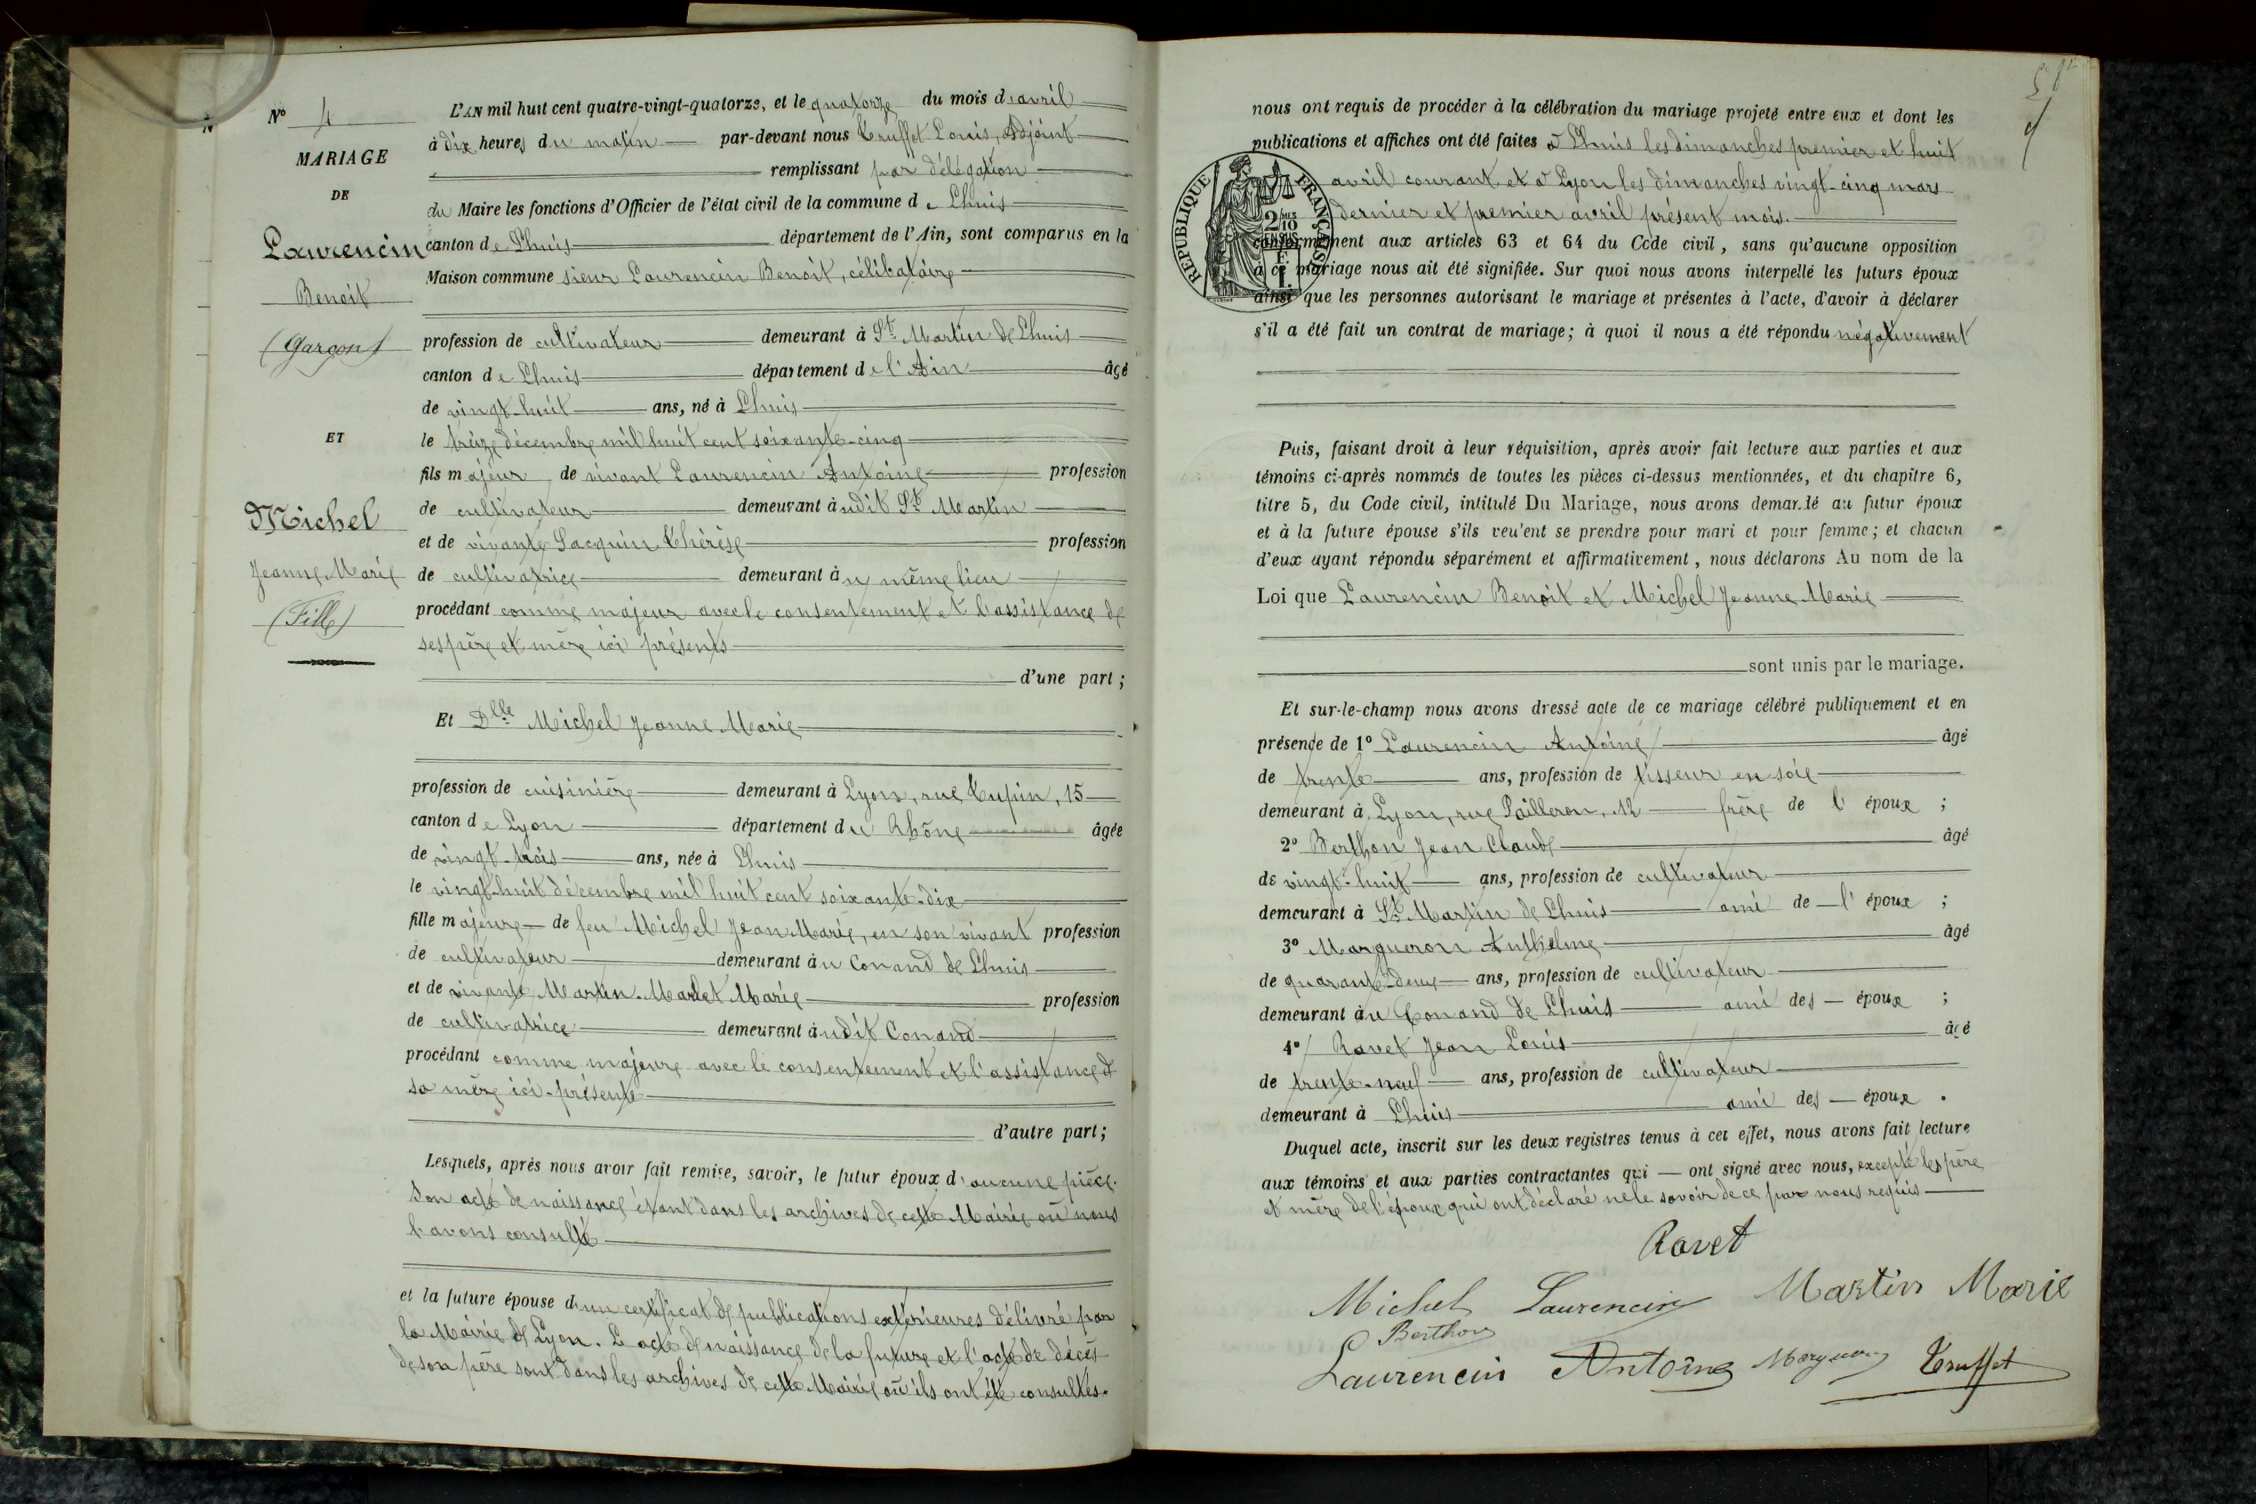 N° 4
MARIAGE
DE
Laurencin
Benoit
(Garçon)
ET
Michel
Jeanne Marie
(Fille)
L'AN mil huit cent quatre-vingt-quatorze, et le quatorze du mois d'avril
à dix heures du matin par-devant nous Truffet Louis, Adjoint
remplissant par délégation
du Maire les fonctions d'Officier de l'état civil de la commune de Lhuis
canton de Lhuis département de l'Ain, sont comparus en la
Maison commune sieur Laurencin Benoit, célibataire
profession de cultivateur demeurant à St. Martin de Lhuis
canton de Lhuis département de l'Ain âgé
de vingt-huit ans, né à Lhuis
le treize décembre mil huit cent soixante-cinq
fils majeur de vivant Laurencin Antoine profession
de cultivateur demeurant audit St. Martin
et de vivante Jacquin Thérèse profession
de cultivatrice demeurant au même lieu
procédant comme majeur avec le consentement et l'assistance de
ses père et mère ici présents
d'une part ;
Et Dlle Michel Jeanne Marie
profession de cuisinière demeurant à Lyon, rue Tupin, 15
canton de Lyon département du Rhône âgée
de vingt-trois ans, née à Lhuis
le vingt-huit décembre mil huit cent soixante-dix
fille majeure de feu Michel Jean Marie, en son vivant profession
de cultivateur demeurant au Conand de Lhuis
et de vivante Martin-Marlet Marie profession
de cultivatrice demeurant audit Conand
procédant comme majeure avec le consentement et l'assistance de
sa mère ici présente
d'autre part ;
Lesquels, après nous avoir fait remise, savoir, le futur époux d'aucune pièce.
Son acte de naissance étant dans les archives de cette Mairie où nous
l'avons consulté
et la future épouse d'un certificat de publications extérieures délivré par
la Mairie de Lyon. L'acte de naissance de la future et l'acte de décès
de son père sont dans les archives de cette Mairie où ils ont été consultés.
nous ont requis de procéder à la célébration du mariage projeté entre eux et dont les
publications et affiches ont été faites à Lhuis les dimanches premier et huit
avril courant, et à Lyon les dimanches vingt-cinq mars
dernier et premier avril présent mois.
RÉPUBLIQUE FRANÇAISE
2/10 EN SUS
conformément aux articles 63 et 64 du Code civil, sans qu'aucune opposition
à ce mariage nous ait été signifiée. Sur quoi nous avons interpellé les futurs époux
ainsi que les personnes autorisant le mariage et présentes à l'acte, d'avoir à déclarer
s'il a été fait un contrat de mariage; à quoi il nous a été répondu négativement
Puis, faisant droit à leur réquisition, après avoir fait lecture aux parties et aux
témoins ci-après nommés de toutes les pièces ci-dessus mentionnées, et du chapitre 6,
titre 5, du Code civil, intitulé Du Mariage, nous avons demandé au futur époux
et à la future épouse s'ils veulent se prendre pour mari et pour femme; et chacun
d'eux ayant répondu séparément et affirmativement, nous déclarons Au nom de la
Loi que Laurencin Benoit et Michel Jeanne Marie
sont unis par le mariage.
Et sur-le-champ nous avons dressé acte de ce mariage célébré publiquement et en
présence de 1° Laurencin Antoine âgé
de trente ans, profession de tisseur en soie
demeurant à Lyon, rue Pailleron, 12 frère de l'époux ;
2° Berthon Jean Claude âgé
de vingt-huit ans, profession de cultivateur
demeurant à St Martin de Lhuis ami de l'époux ;
3° Margueron Anthelme âgé
de quarante-deux ans, profession de cultivateur
demeurant au Conand de Lhuis ami des époux ;
4° Ravet Jean Louis âgé
de trente-neuf ans, profession de cultivateur
demeurant à Lhuis ami des époux .
Duquel acte, inscrit sur les deux registres tenus à cet effet, nous avons fait lecture
aux témoins et aux parties contractantes qui ont signé avec nous, excepté les père
et mère de l'époux qui ont déclaré ne le savoir de ce par nous requis
Ravet
Michel Laurencin Martin Marie
Berthon
Laurencin Antoine Margueron Truffet